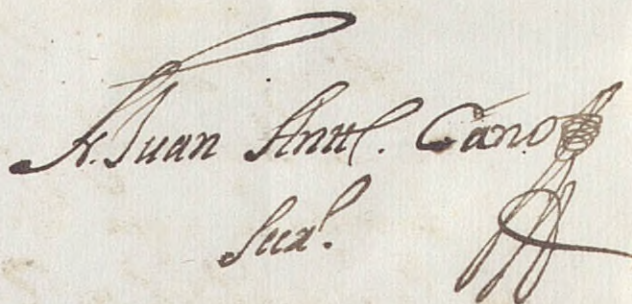 Fr. Juan Anttº. Cano
Secrº.